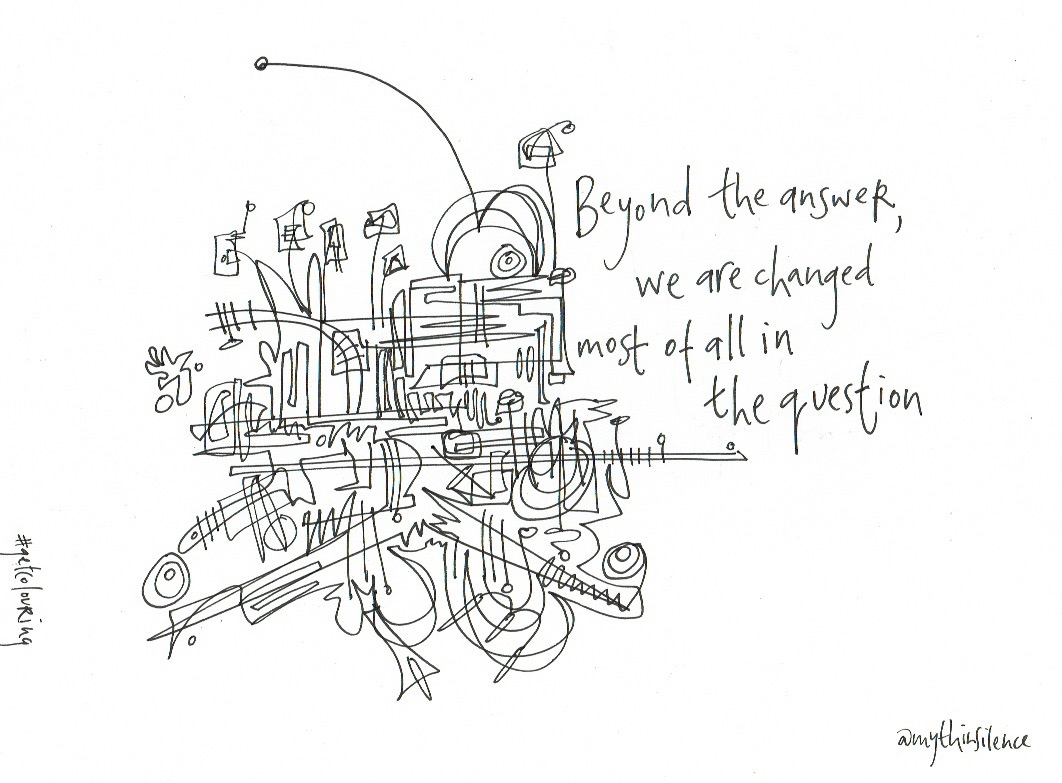 Beyond the answer,
we are changed
most of all in
the question
#getcolouring
@mythinsilence